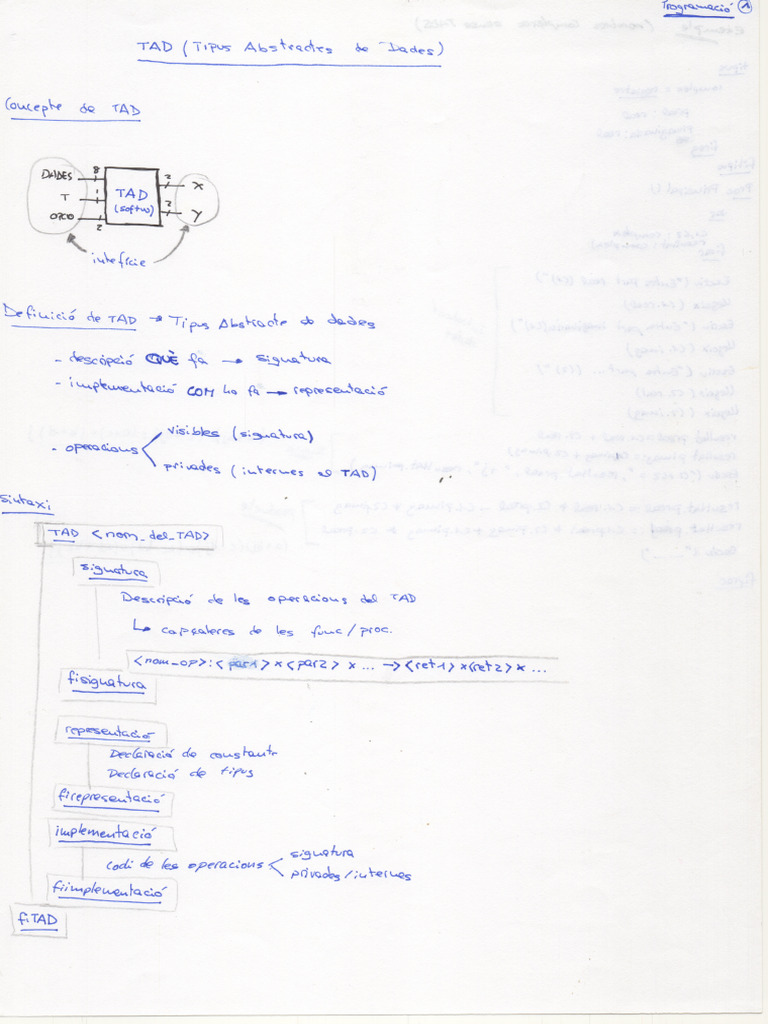 Programació 1
TAD (Tipus Abstractes de Dades)
Concepte de TAD
DADES 8
T 1
OPCIO 2
TAD
(softw)
2 X
2 Y
intefície
Definició de TAD → Tipus Abstracte de dades
- descripció QUÈ fa → signatura
- implementació COM ho fa → representació
- operacions
visibles (signatura)
privades (internes al TAD)
Sintaxi
TAD <nom_del_TAD>
signatura
Descripció de les operacions del TAD
↳ capçaleres de les func/proc.
<nom_op>:<par1> x <par2> x ... → <ret1> x <ret2> x ...
fisignatura
representació
Declaració de constants
Declaració de tipus
firepresentació
implementació
codi de les operacions
signatura
privades/internes
fiimplementació
fiTAD